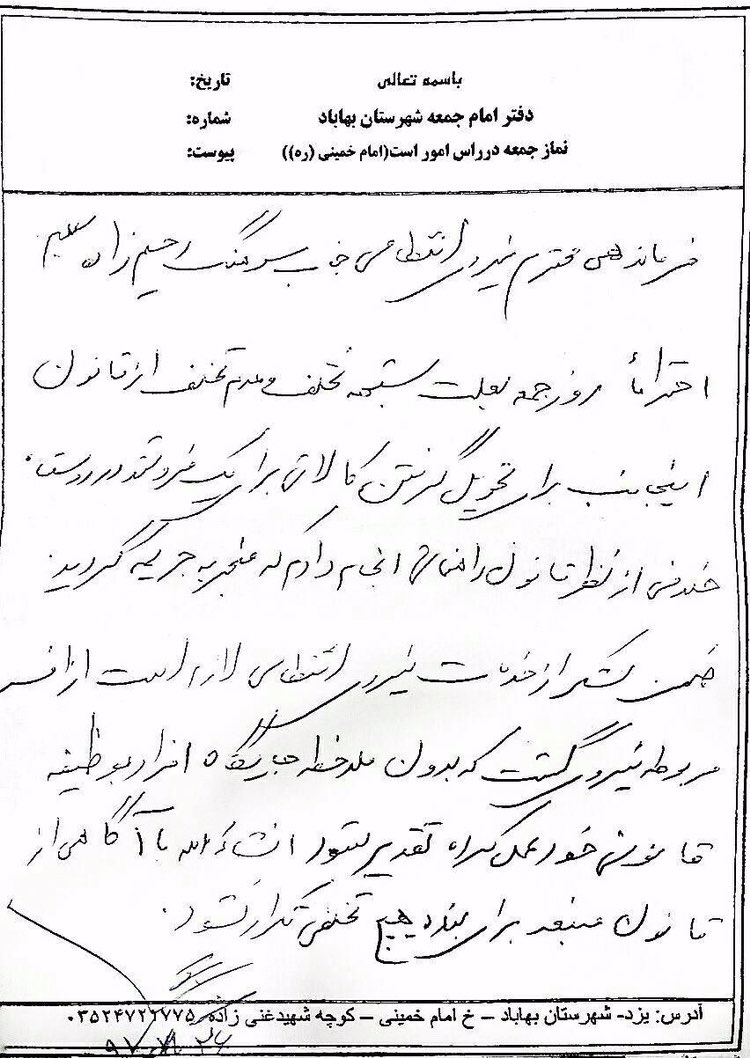 باسمه تعالی
تاریخ:
دفتر امام جمعه شهرستان بهاباد
شماره:
نماز جمعه درراس امور است(امام خمینی (ره))
پیوست:
فرماندهی محترم نیروی انتظامی جناب سرهنگ رحیم زاده
احتراماً روز جمعه بعلت شبهه تخلف و عدم تخلف از قانون
اینجانب برای تحویل گرفتن کالائی برای یک فروشنده در روستا
خلافی از نظر قانون راهنمائی انجام دادم که منجر به جریمه گردید
ضمن تشکر از خدمات نیروی انتظامی لازم است از افسر
مربوطه نیروی گشت که بدون ملاحظه جایگاه افراد بوظیفه
قانونی خود عمل کرده تقدیر بشود انشاءالله با آگاهی از
قانون منبعد برای بنده هیچ تخلفی تکرار نشود.
آدرس: یزد- شهرستان بهاباد – خ امام خمینی – کوچه شهیدغنی زاده ۰۳۵۲۴۷۲۲۷۷۵